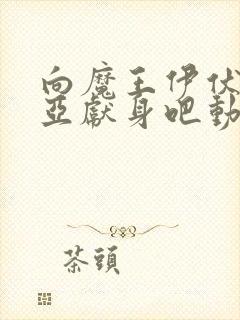 向魔王伊伏
亞獻身吧動
茶頭